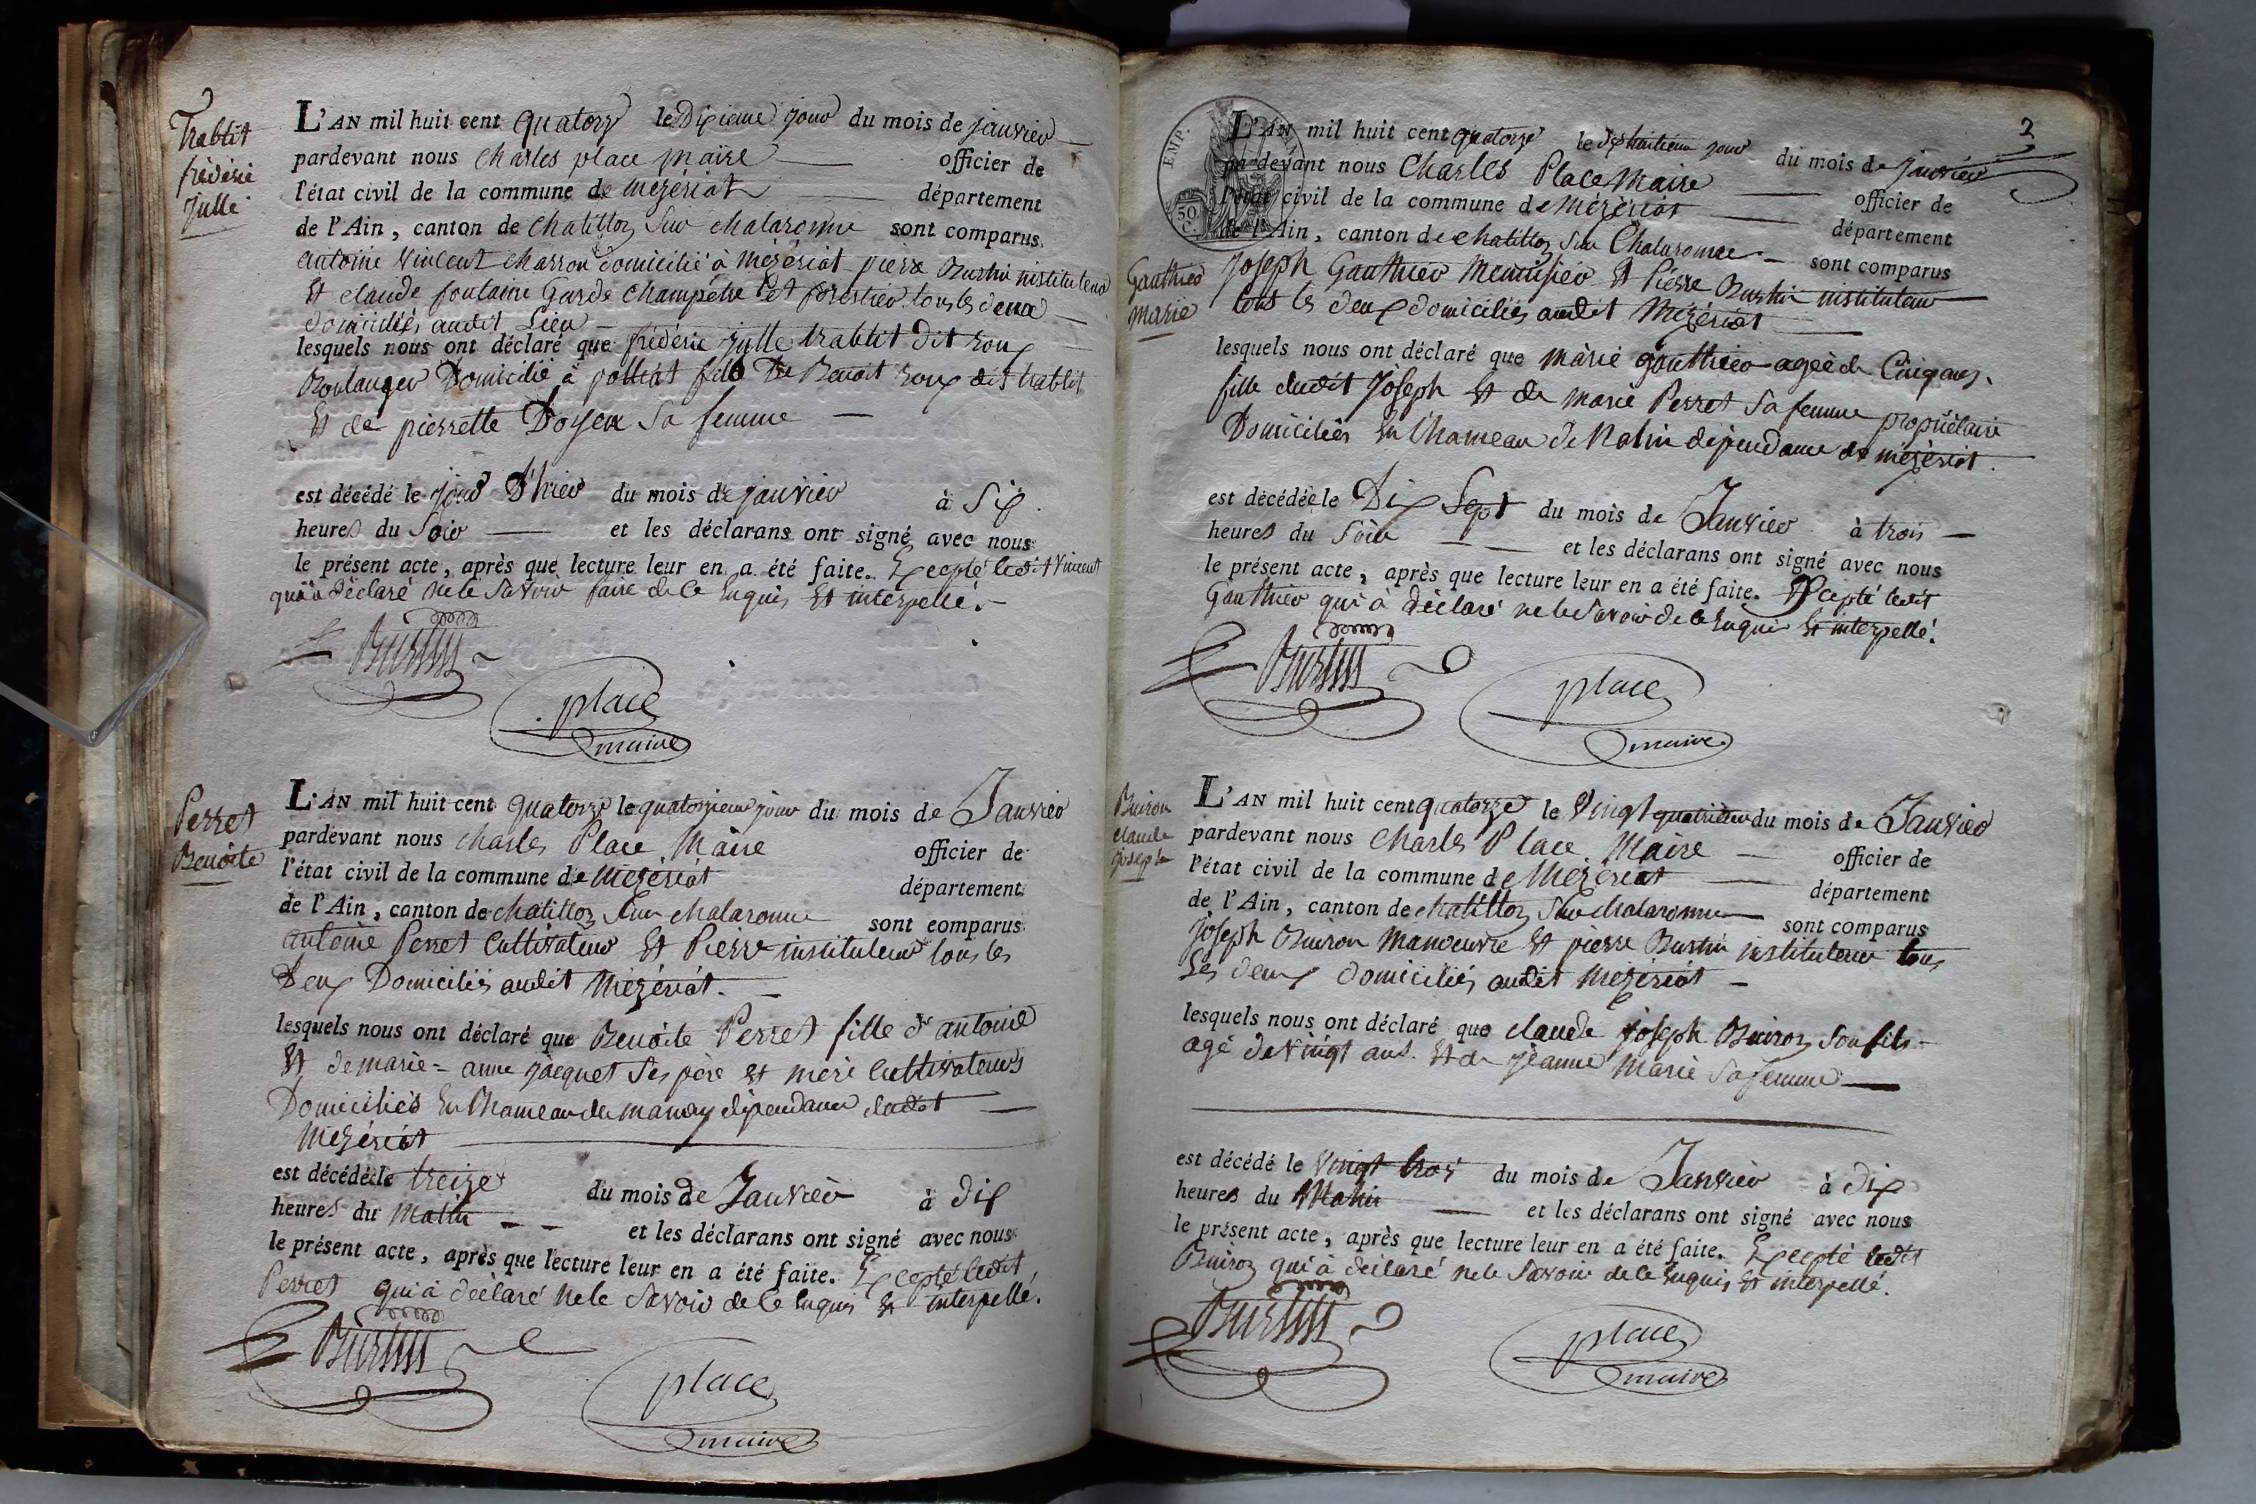 Trablit
frédéric
Julle
L'AN mil huit cent quatorze le Dixieme jour du mois de janvier
pardevant nous Charles place maire officier de
l'état civil de la commune de mezériat département
de l'Ain, canton de Chatillon Sur Chalaronne sont comparus.
antoine Vincent charron domicilié à mezériat pierre Burtin instituteur
Et claude fontaine Garde Champêtre et forestier tous les deux
domiciliés audit Lieu
lesquels nous ont déclaré que frédéric Julle trablit dit roux
Boulanger Domicilié à polliat fils De Benoit roux dit trablit
Et de pierrette Doyen Sa femme
est décédé le jour D'hier du mois de janvier à Six
heures du Soir et les déclarans ont signé avec nous
le présent acte, après que lecture leur en a été faite. Excepté ledit Vincent
qui à déclaré ne le Savoir faire de ce Enquis Et interpellé.
Burtin
place
maire
Perret
Benoite
L'AN mil huit cent quatorze le quatorzieme jour du mois de Janvier
pardevant nous Charles Place Maire officier de
l'état civil de la commune de Mezériat département
de l'Ain, canton de Chatillon Sur chalaronne sont comparus
antoine Perret Cultivateur Et Pierre instituteur tous les
Deux Domiciliés audit Mezériat.
lesquels nous ont déclaré que Benoite Perret fille d'antoine
Et de marie=anne jacquet Ses père et mère Cultivateurs
Domiciliés En l'hameau de manay dépendance dudit
Mezériat
est décédée le treize du mois de Janvier à dix
heures du Matin et les déclarans ont signé avec nous
le présent acte, après que lecture leur en a été faite. Excepté ledit
Perret qui à déclaré ne le Savoir de ce Enquis Et interpellé.
Burtin
place
maire
2
EMP.
50
C.
L'AN mil huit cent quatorze le dixhuitieme jour du mois de janvier
pardevant nous Charles Place Maire officier de
l'état civil de la commune de Mezériat département
de l'Ain, canton de Chatillon Sur Chalaronne sont comparus
Gauthier
marie
Joseph Gauthier Menuisier Et Pierre Burtin instituteur
tous les deux domiciliés audit Mezériat
lesquels nous ont déclaré que marie gauthier agée de Cinq ans,
fille dudit Joseph Et de marie Perret Sa femme propriétaire
Domiciliés En l'hameau de dépendance de mezériat.
est décédée le Dix Sept du mois de Janvier à trois
heures du Soir et les déclarans ont signé avec nous
le présent acte, après que lecture leur en a été faite. Excepté ledit
Gauthier qui à déclaré ne le Savoir de ce Enquis Et interpellé.
Burtin
place
maire
Buiron
claude
joseph
L'AN mil huit cent quatorze le Vingt quatrième du mois de Janvier
pardevant nous Charles Place Maire officier de
l'état civil de la commune de Mezériat département
de l'Ain, canton de chatillon Sur chalaronne sont comparus
Joseph Buiron Manoeuvre Et pierre Burtin instituteur tous
Les deux domiciliés audit Mezériat
lesquels nous ont déclaré que claude joseph Buiron Son fils
agé de Vingt ans. Et de jeanne Marie Sa femme
est décédé le Vingt trois du mois de Janvier à dix
heures du Matin et les déclarans ont signé avec nous
le présent acte, après que lecture leur en a été faite. Excepté ledit
Buiron qui à déclaré ne le Savoir de ce Enquis Et interpellé.
Burtin
place
maire